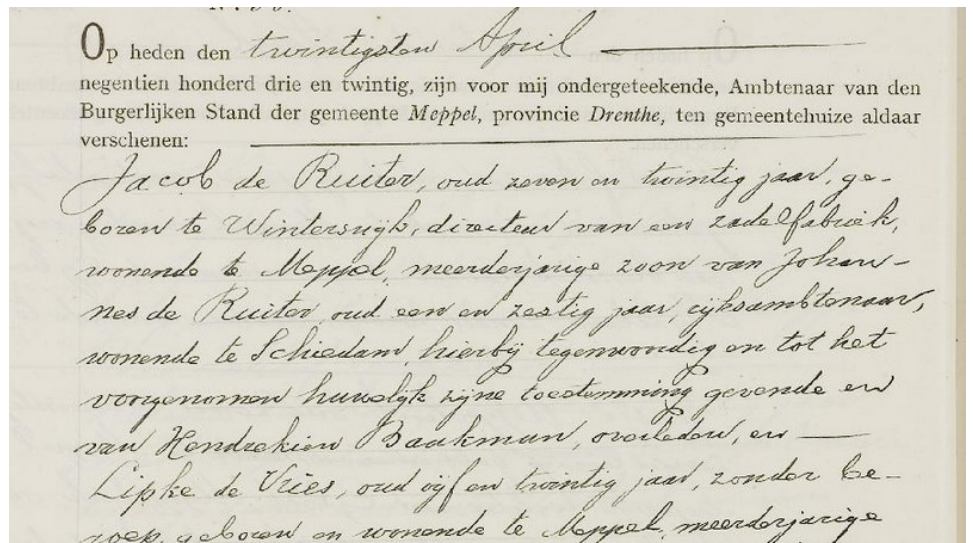 Op heden den twintigsten April
negentien honderd drie en twintig, zijn voor mij ondergeteekende, Ambtenaar van den
Burgerlijken Stand der gemeente Meppel, provincie Drenthe, ten gemeentehuize aldaar
verschenen:
Jacob de Ruiter, oud zeven en twintig jaar, ge-
boren te Winterswijk, directeur van een zadelfabriek,
wonende te Meppel, meerderjarige zoon van Johan-
nes de Ruiter, oud een en zestig jaar, rijksambtenaar,
wonende te Schiedam, hierbij tegenwoordig en tot het
voorgenomen huwelijk zijne toestemming gevende en
van Hendrekien Baakman, overleden, en
Lipke de Vries, oud vijf en twintig jaar, zonder be-
roep, geboren en wonende te Meppel, meerderjarige